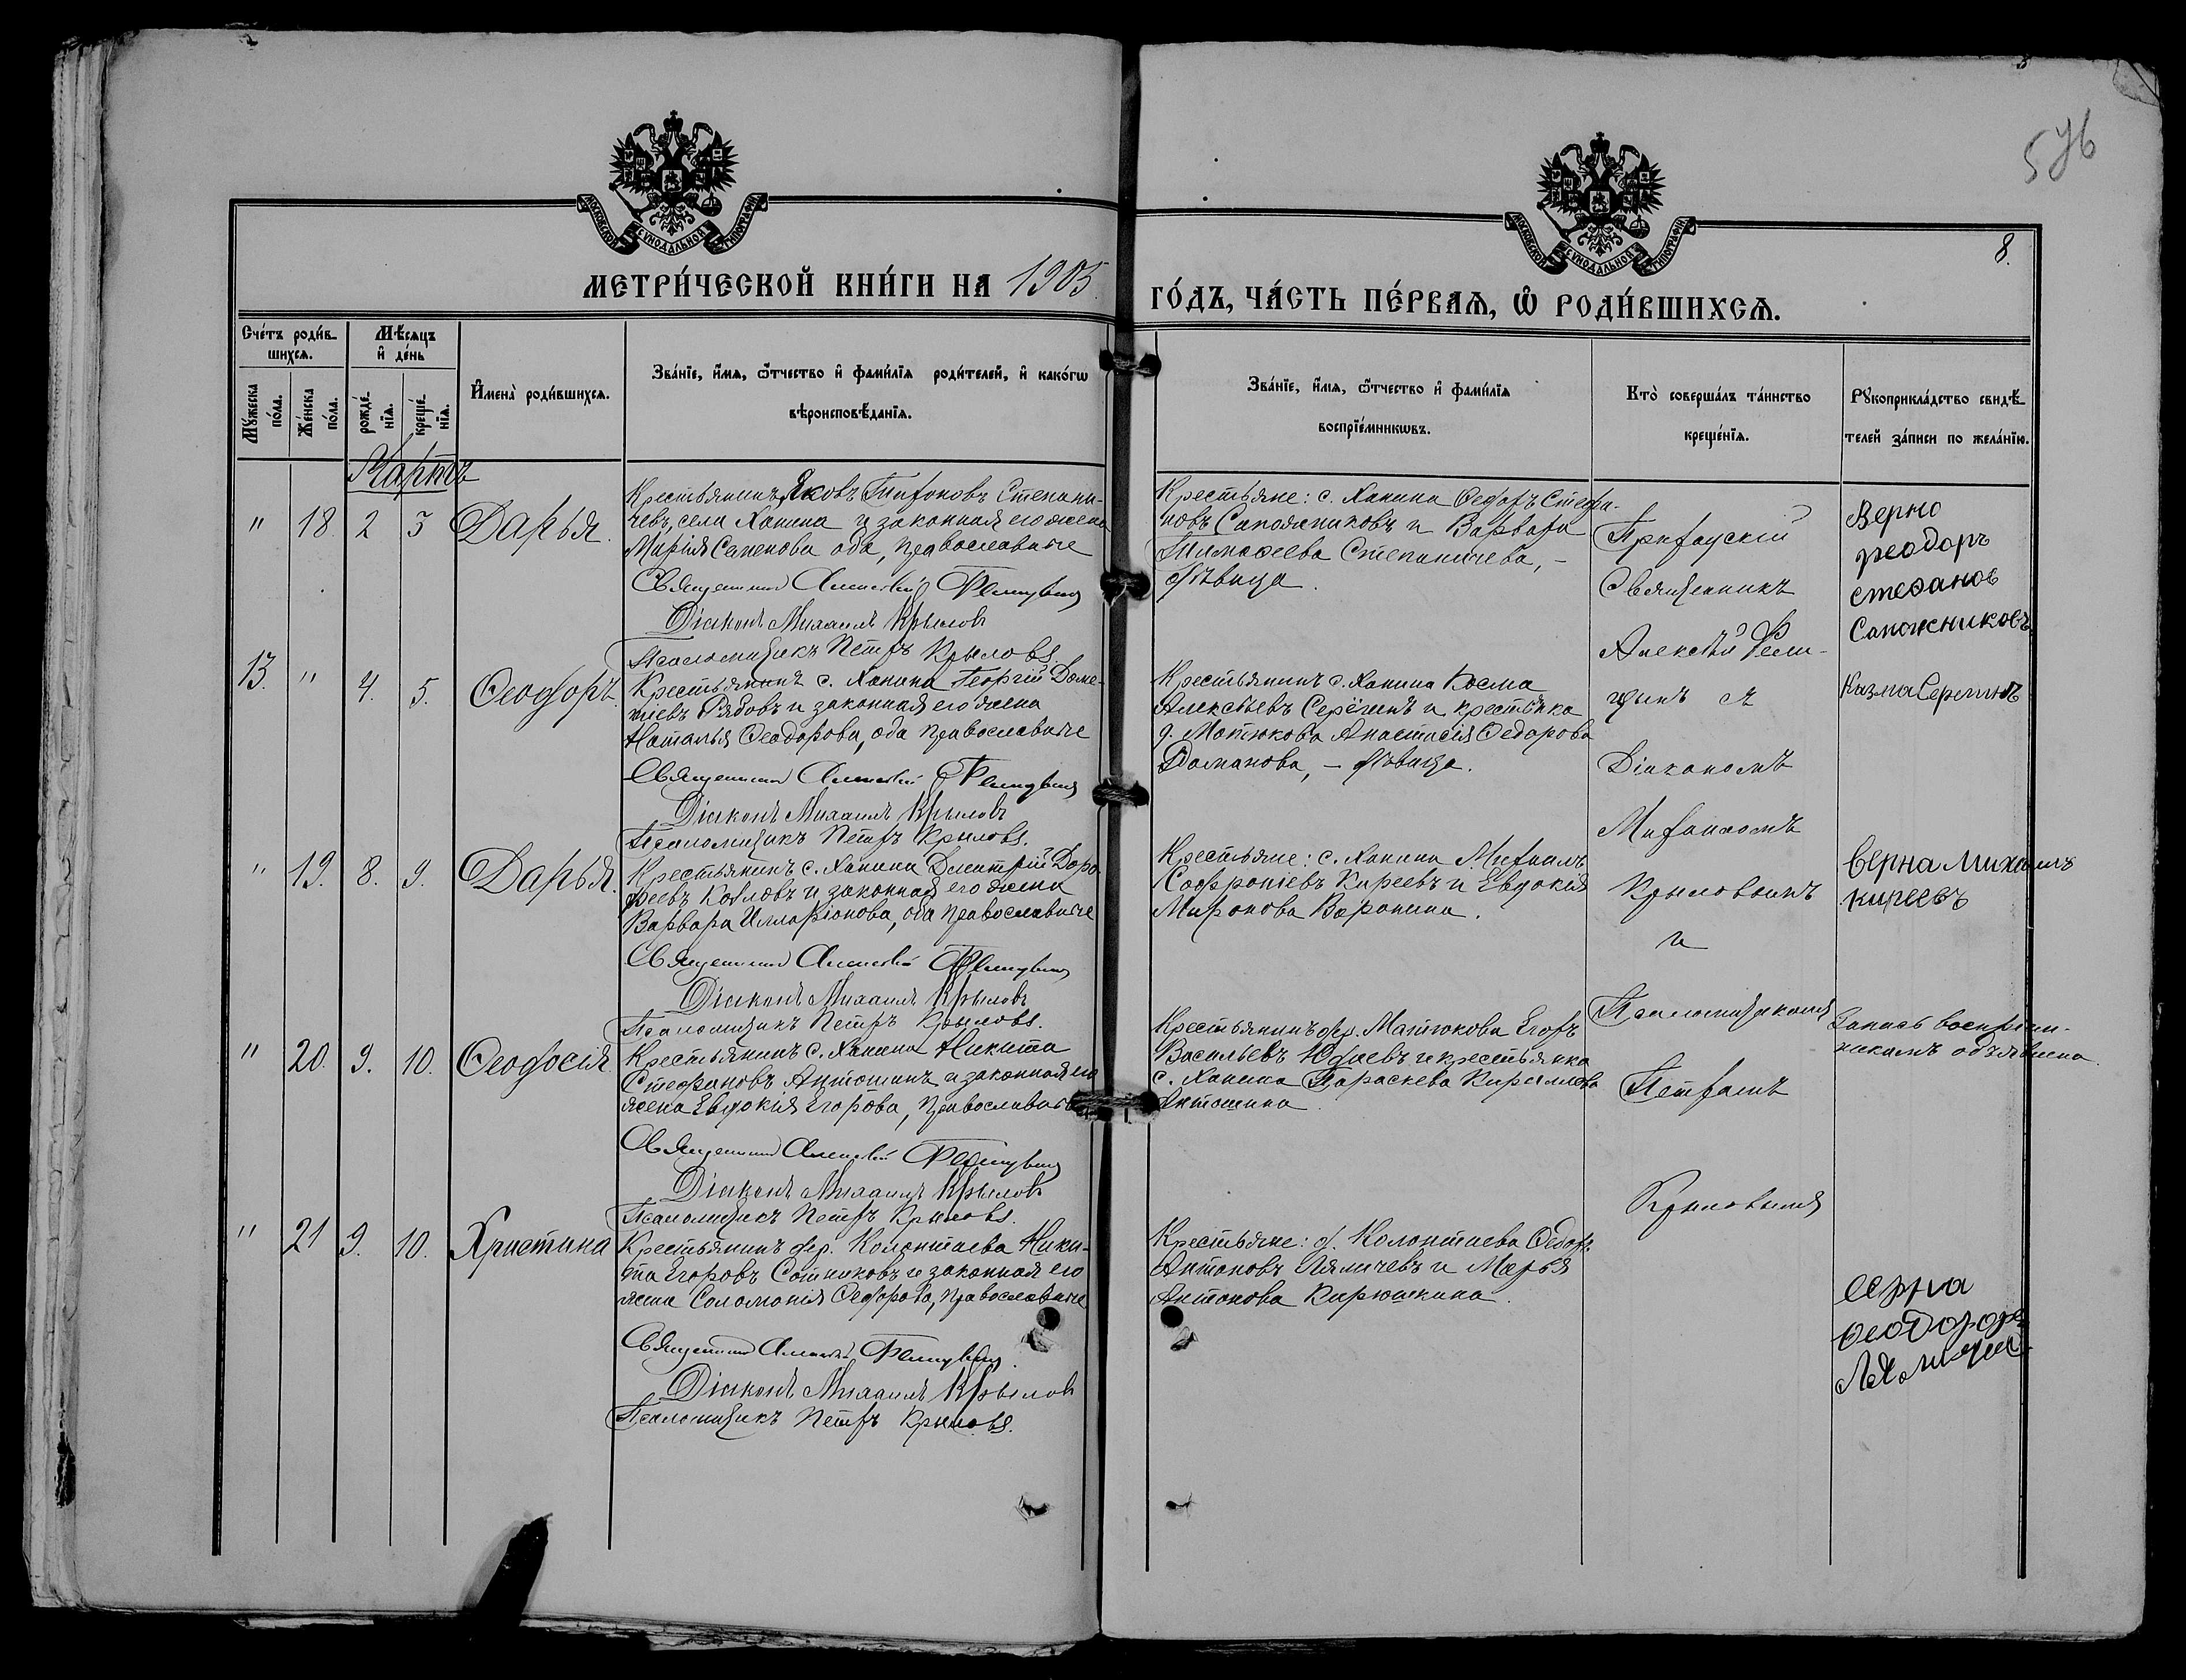 576
8.
МОСКОВСКОЙ СѴНОДАЛЬНОЙ ТИПОГРАФІИ
МОСКОВСКОЙ СѴНОДАЛЬНОЙ ТИПОГРАФІИ
МЕТРИ́ЧЕСКОЙ КНИ́ГИ НА 1905
ГО́ДЪ, ЧА́СТЬ ПЕ́РВАѦ, Ѡ҆ РОДИ́ВШИХСѦ.
Сче́тъ роди́в-
шихсѧ.
Мꙋ́жеска
по́ла.
Же́нска
по́ла.
Мѣ́сѧцъ
и҆ де́нь
рожде́-
нїѧ.
креще́-
нїѧ.
И҆мена̀ роди́вшихсѧ.
Зва́нїе, и҆́мѧ, ѻ҆́тчество и҆ фами́лїѧ роди́телей, и҆ како́гѡ
вѣроисповѣ́данїѧ.
Зва́нїе, и҆́мѧ, ѻ҆́тчество и҆ фами́лїѧ
воспрїе́мникѡвъ.
Кто̀ соверша́лъ та́инство
креще́нїѧ.
Рꙋкоприкла́дство свидѣ́-
телей за́писи по жела́нїю.
Мартъ
" 18 2 3 Дарья.
Крестьянинъ Яковъ Тихоновъ Степани-
чевъ, села Ханина и законная его жена
Марія Семенова оба, православные
Священникъ Алексѣй Фелицынъ
Діаконъ Михаилъ Крыловъ
Псаломщикъ Петръ Крыловъ
Крестьяне: с. Ханина Ѳедоръ Стефа-
новъ Сапожниковъ и Варвара
Тимоѳеева Степаничева, -
дѣвица.
Вѣрно
ѳеодоръ
стефанов
Сапожниковъ
13. " 4. 5. Ѳеодоръ.
Крестьянинъ с. Ханина Георгій Доме-
тіевъ Рябовъ и законная его жена
Наталья Ѳеодорова, оба православные
Священникъ Алексѣй Фелицынъ
Діаконъ Михаилъ Крыловъ
Псаломщикъ Петръ Крыловъ.
Крестьянинъ с. Ханина Косма
Алексѣевъ Серегинъ и крестьянка
д. Матюкова Анастасія Ѳедорова
Доманова, - дѣвица.
Казма Серегинъ
" 19. 8. 9. Дарья.
Крестьянинъ с. Ханина Димитрій Доро-
феевъ Козловъ и законная его жена
Варвара Илларіонова, оба православные
Священникъ Алексѣй Фелицынъ
Діаконъ Михаилъ Крыловъ
Псаломщикъ Петръ Крыловъ.
Крестьяне: с. Ханина Михаилъ
Софроніевъ Киреевъ и Евдокія
Миронова Воронина.
верна михаилъ
киреевъ
" 20. 9. 10. Ѳеодосія
Крестьянинъ с. Ханина Никита
Стефановъ Антошинъ и законная его
жена Евдокія Егорова, православные
Священникъ Алексѣй Фелицынъ
Діаконъ Михаилъ Крыловъ
Псаломщикъ Петръ Крыловъ.
Крестьянинъ дер. Матюкова Егоръ
Васильевъ Юдаевъ и крестьянка
с. Ханина Параскева Кириллова
Антошина.
Запись воспріем-
никамъ объявлена
" 21 9. 10. Христина
Крестьянинъ дер. Колонтаева Ники-
та Егоровъ Сотниковъ и законная его
жена Соломонія Ѳедорова, православные
Священникъ Алексѣй Фелицынъ.
Діаконъ Михаилъ Крыловъ
Псаломщикъ Петръ Крыловъ.
Крестьяне: д. Колонтаева Ѳедоръ
Антоновъ Лямичевъ и Марья
Антонова Кирюшкина.
верна
ѳеодоръ
Лямичев
Приходскій
Священникъ
Алексѣй Фели-
цынъ съ
Діакономъ
Михаиломъ
Крыловымъ
и
Псаломщикомъ
Петромъ
Крыловымъ